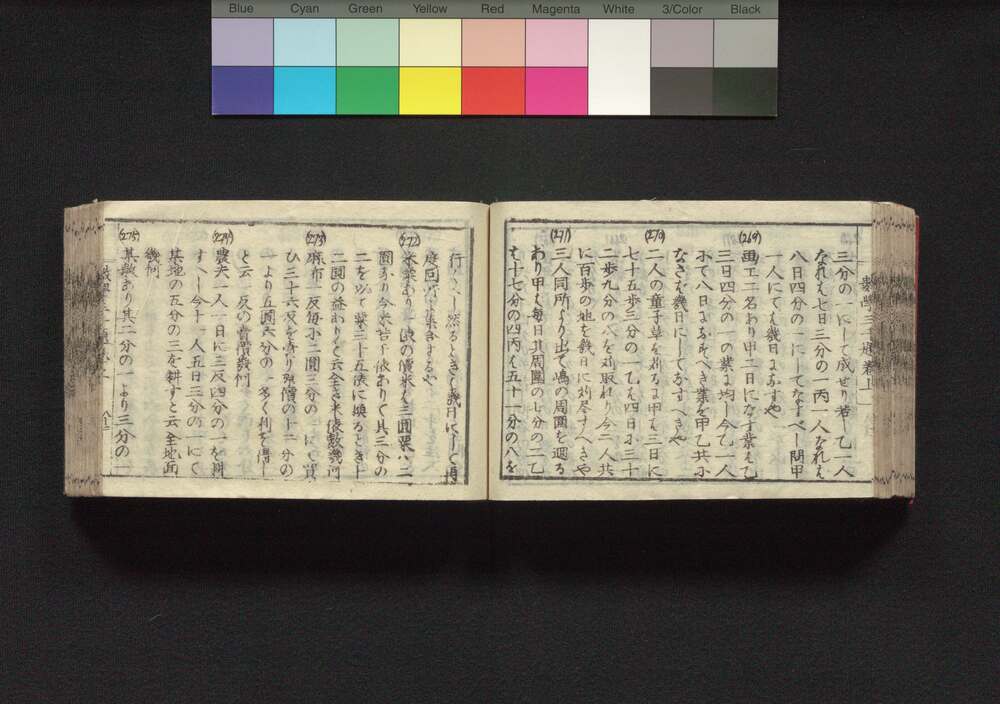 Blue Cyan Green Yellow Red Magenta White 3/Color Black
三分の一にして成せり若し乙一人
なれは七日三分の一丙一人なれは
八日四分の一にしてなすべし問甲
一人にては幾日になすや
(269)
画工二名あり甲二日になす業は乙
三日四分の一の業に均し今乙一人
にて八日になすべき業を甲乙共に
なさば幾日にしてなすべきや
(270)
二人の童子草を苅るに甲は三日に
七十五歩三分の一乙は四日に三十
二歩九分の八を苅取れり今二人共
に百歩の地を幾日に苅尽すべきや
(271)
三人同所より出て嶋の周囲を廻る
あり甲は毎日其周囲の七分の二乙
は十七分の四丙は五十一分の八を
行べし然るときは幾日にして再
度同所に集会するや
(272)
米粟あり一俵の價米は三圓粟は二
圓なり今米若干俵ありて其三分の
二を以て粟三十五俵に換るとき十
二圓の益ありと云全き米俵数幾何
(273)
麻布一反毎に二圓三分の一にて買
ひ三十六反を賣り
より五圓六分の一多く利を得し
と云一反の賣價幾何
(274)
農夫一人一日に三反四分の一を耕
すべし今十一人五日三分の一にて
其地の五分の三を耕すと云全地面
幾何
(275)
某数あり其二分の一より三分の一